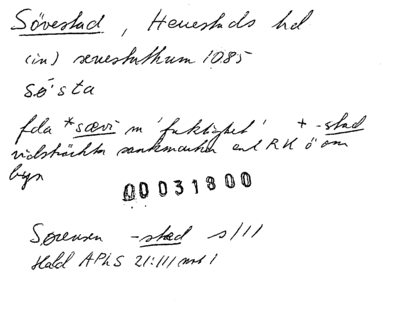 Sövestad, Herrestads hd
(in) seuestathum 1085
sö́sta
fda *sævi m 'fuktighet' + -stad
vidsträckta sankmarker enl RK ö om
byn
00031800
Sørensen -stad s 111
Hald APhS 21:111 not 1